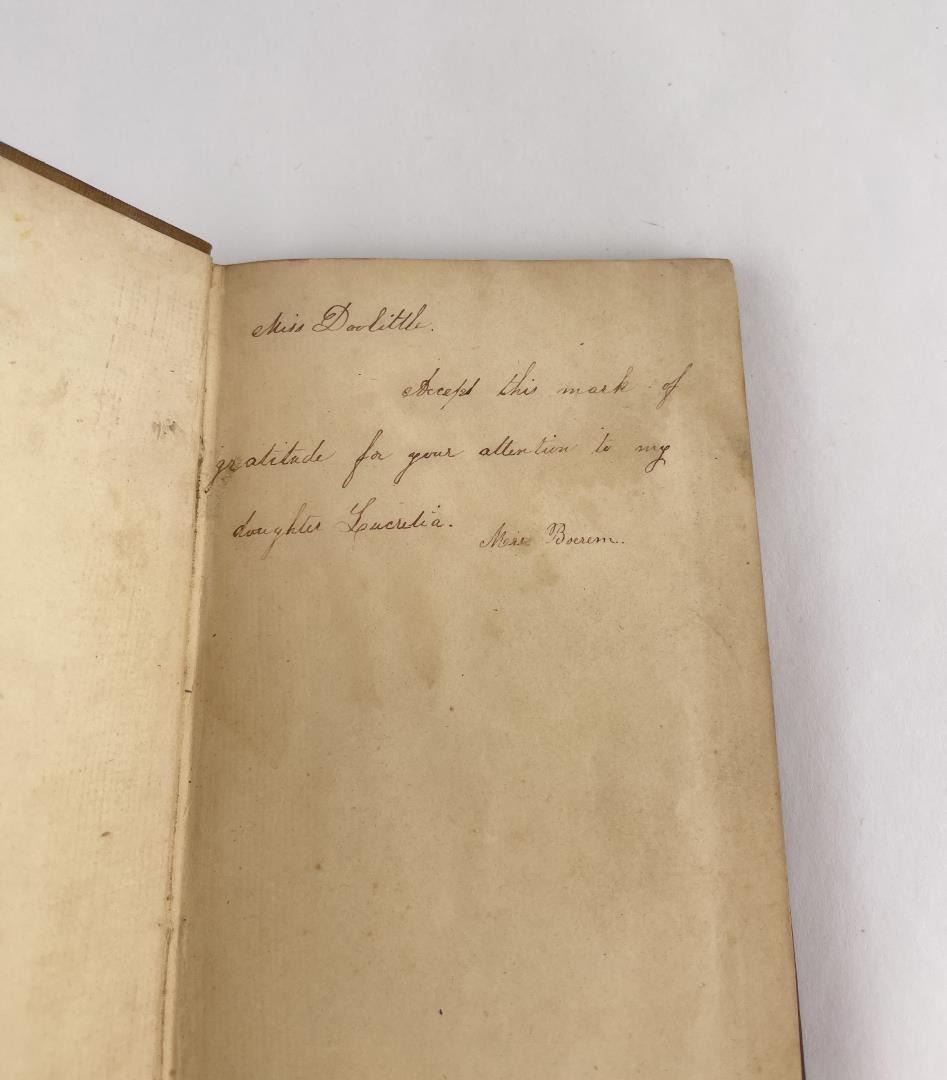 Miss Doolittle.
Accept this mark of
gratitude for your attention to my
daughter Lucretia.
Boerem.